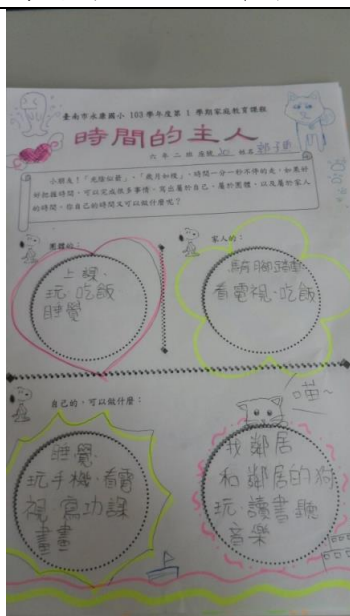 臺南市永康國小 103 學年度第 1 學期家庭教育課程
時間的主人
六年二班 座號 20 姓名
小朋友！「光陰似箭」、「歲月如梭」，時間一分一秒不停的走，如果好
好把握時間，可以完成很多事情，寫出屬於自己、屬於團體、以及屬於家人
的時間，你自己的時間又可以做什麼呢？
團體的：
上課．
玩．吃飯
睡覺
家人的：
騎腳踏車
看電視．吃飯
自己的，可以做什麼：
睡覺．
玩手機．看電
視．寫功課
畫畫
喵~
找鄰居
和鄰居的狗
玩．讀書聽
音樂